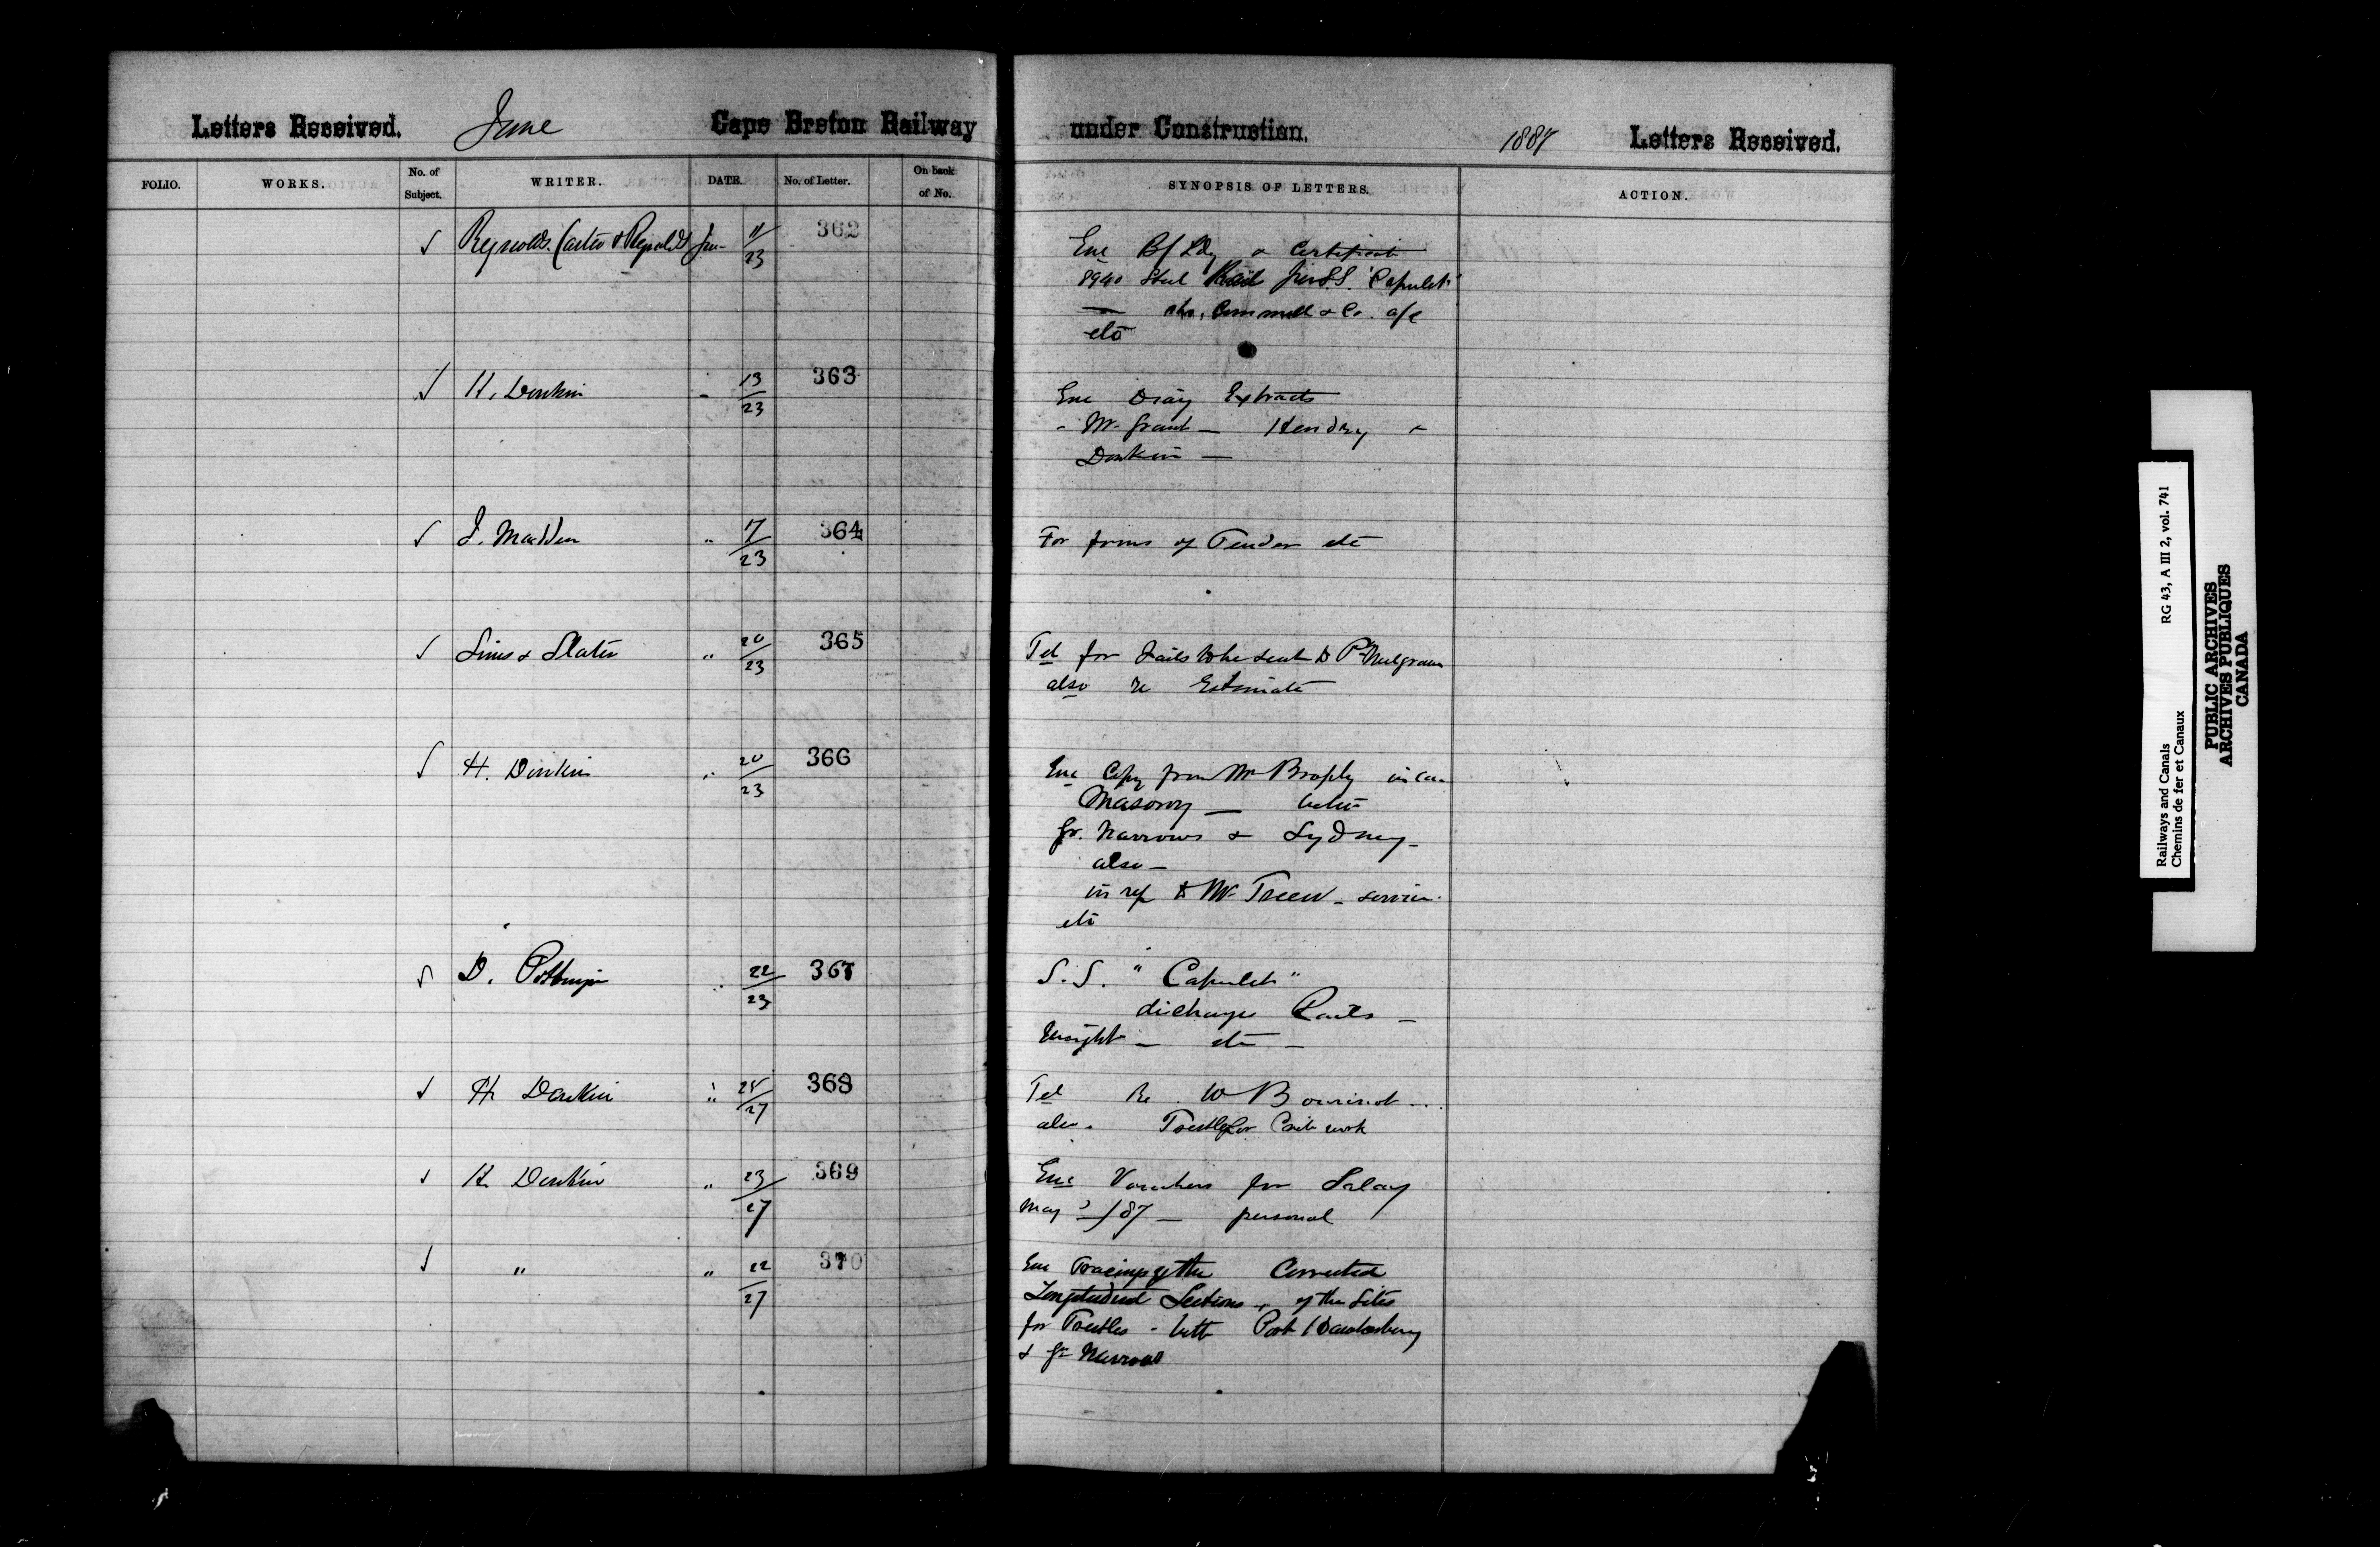 Letters Received. June Cape Breton Railway under Construction. 1887 Letters Received.
FOLIO. WORKS. No. of Subject. WRITER. DATE. No. of Letter. On back of No. SYNOPSIS OF LETTERS. ACTION.
Reynolds (Carter & Reynolds) Jun- 11/23 362 Enc B/Ldg & Certificate
8940 Steel Rail per S.S. "Capulet"
Cammell & Co. a/c
etc
H. Donkin 13/23 363 Enc Diary Extracts
- Mr. Grant - Hendry
Donkin -
J. Madden " 17/23 364 For forms of Tender etc
Sims & Slater " 20/23 365 Tel for Rails to be sent to Pt Mulgrave
also re Estimate
H. Donkin " 20/23 366 Enc Copy from Mr Brophy
Masonry -
Gr. Narrows & Sydney -
also -
in ref to Mr
etc
D. Pottinger " 22/23 367 S.S. "Capulet"
discharge Rails -
Weight - etc -
H Donkin " 25/27 368 Tel Re W Bourinot
also Trestle for Crib work
H. Donkin " 23/27 369 Enc Vouchers for Salary
May /87 - personal
" " 22/27 370 Enc Tracings of the Corrected
Longitudinal Sections of the Sites
for Trestles - betn Port Hawkesbury
& Gr Narrows
Railways and Canals RG 43, A III 2, vol. 741
Chemins de fer et Canaux
PUBLIC ARCHIVES
ARCHIVES PUBLIQUES
CANADA